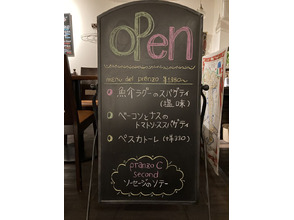 OPen
menu del pranzo ¥1350~
魚介ラグーのスパゲティ
(塩味)
ベーコンとナスの
トマトソーススパゲティ
ペスカトーレ (+¥220)
pranzo C
second
ソーセージのソテー